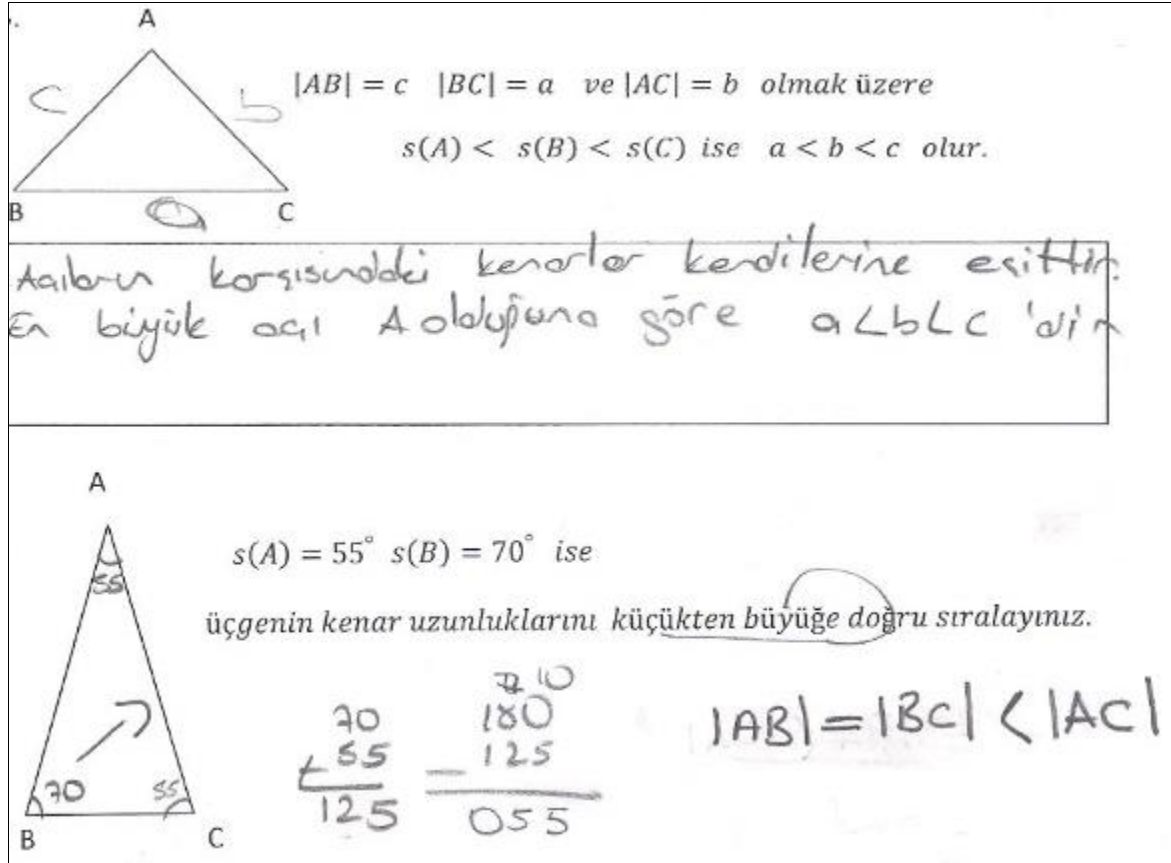 A
c
b
|AB| = c |BC| = a ve |AC| = b olmak üzere
s(A) < s(B) < s(C) ise a < b < c olur.
B
a
C
Açıların karşısındaki kenarlar kendilerine eşittir.
En büyük açı A olduğuna göre a<b<c 'dir
A
55
s(A) = 55° s(B) = 70° ise
üçgenin kenar uzunluklarını küçükten büyüğe doğru sıralayınız.
70
+ 55
125
10
180
- 125
055
|AB| = |BC| < |AC|
70
55
B
C